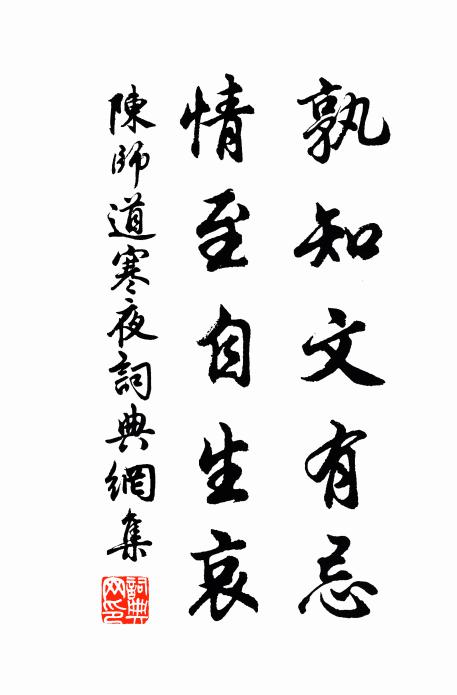 孰知文有忌
情至自生哀
陳師道寒夜詞典網集
詞典網印